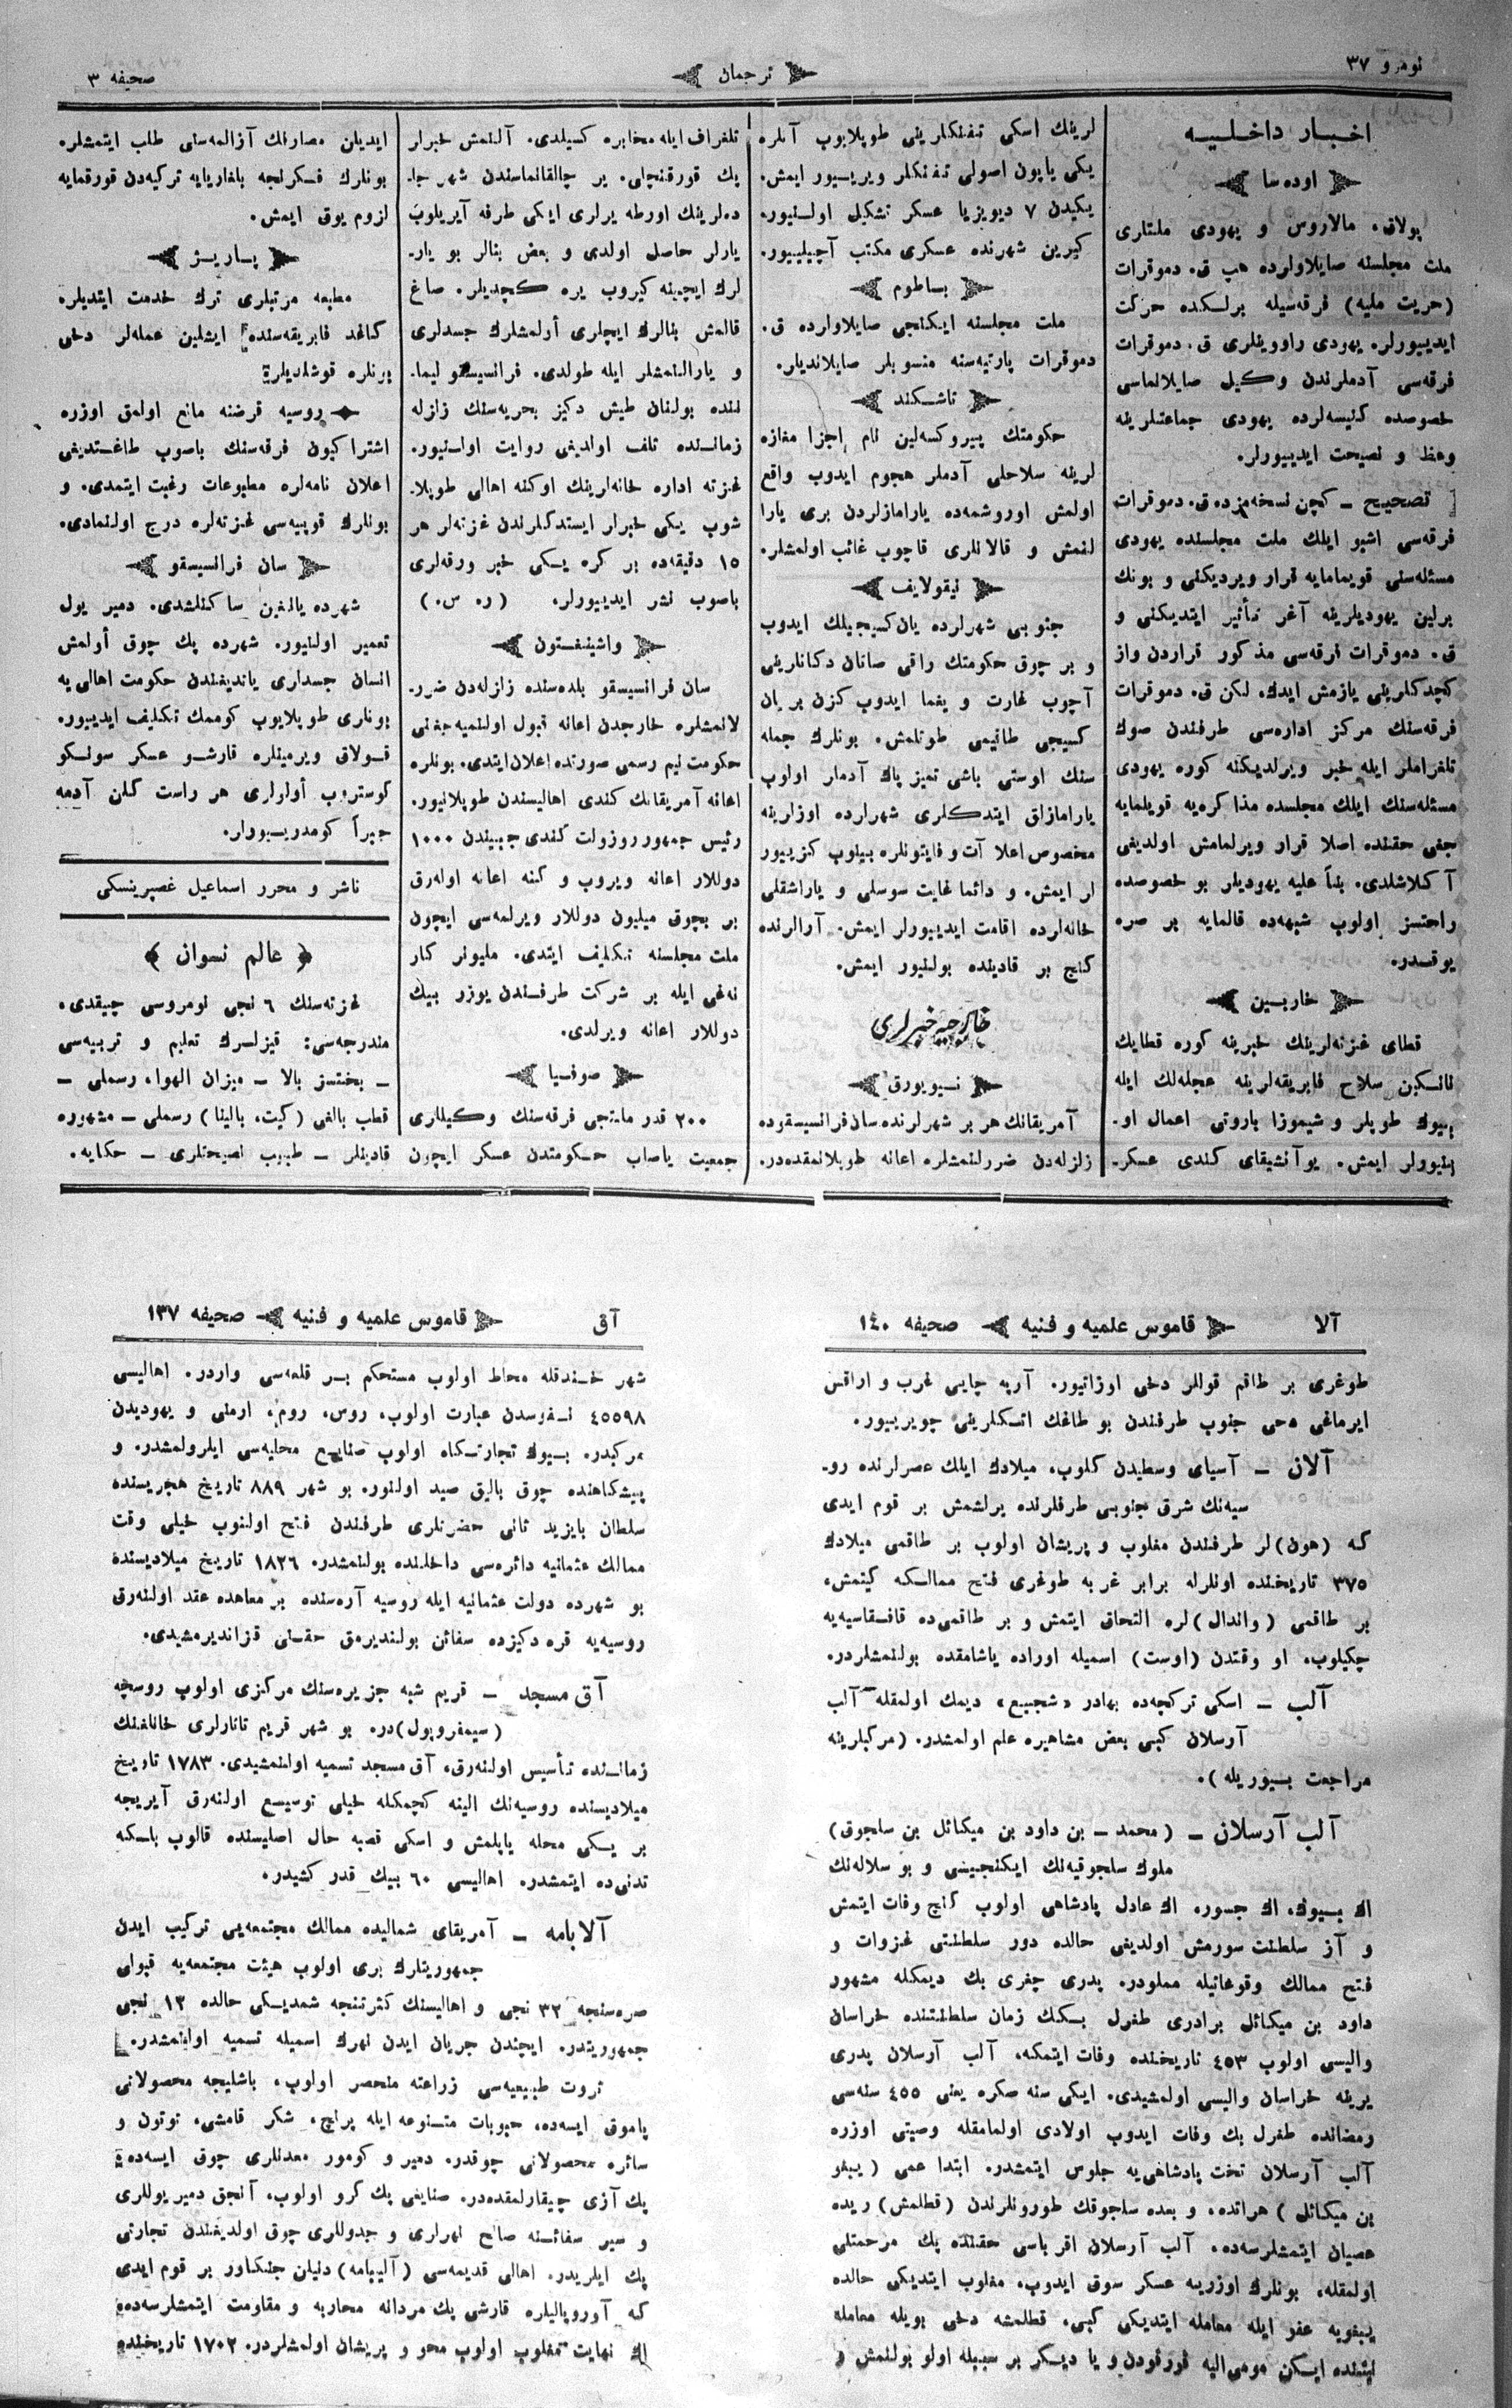 نومرو ٣٧
ترجمان
صحيفه ٣
اخبار داخليه
اوده‌سا
پولاق، مالاروس و يهودى ملتلرى
ملت مجلسنه صايلاولرده هپ ق. دموقرات
(حريت مليه) فرقه‌سيله برلكده حركت
ايدييورلر. يهودى راووينلرى ق. دموقرات
فرقه‌سى آدملرندن وكيل صايلانماسى
خصوصده كنيسه‌لرده يهودى جماعتلرينه
وعظ و نصيحت ايدييورلر.
تصحيح ــ كچن نسخه‌مزده ق. دموقرات
فرقه‌سى اشبو ايلك ملت مجلسنده يهودى
مسئله‌سنى قويمامايه قرار ويرديكنى و بونك
برلين يهوديلرينه آغر تأثير ايتديكنى و
ق. دموقرات فرقه‌سى مذكور قراردن واز
كچدكلرينى يازمش ايدك. لكن ق. دموقرات
فرقه‌سنك مركز اداره‌سى طرفندن صوك
تلغراملر ايله خبر ويرلديكنه كوره يهودى
مسئله‌سنك ايلك مجلسده مذاكره‌يه قويلمايه
جغى حقنده اصلا قرار ويرلمامش اولديغى
آكلاشلدى. بناً عليه يهوديلر بو خصوصده
راحتسز اولوب شبهه‌ده قالمايه بر صره
يوقدر.
خاربين
قطاى غزته‌لرينك خبرينه كوره قطايك
نانكين سلاح فابريقه‌لرينه عجله‌لك ايله
بيوك طوپلر و شيموزا باروتى اعمال او-
لنيورلر ايمش. يوآنشيقاى كندى عسكر-
لرينك اسكى تفنكلرينى طوپلايوب آنلره
يكى ياپون اصولى تفنكلر ويرييور ايمش.
يكيدن ٧ ديويزيا عسكر تشكيل اولنيور.
كيرين شهرنده عسكرى مكتب آچيلييور.
باطوم
ملت مجلسنه ايكنجى صايلاولرده ق.
دموقرات پارتيه‌سنه منسوبلر صايلانديلر.
تاشكند
حكومتك پيروكسه‌لين نام اجزا مغازه
لرينه سلاحلى آدملر هجوم ايدوب واقع
اولمش اوروشمه‌ده يارامازلردن برى يارا
لنمش و قالانلرى قاچوب غائب اولمشلر.
نيقولايف
جنوبى شهرلرده يان كسيجيلك ايدوب
و بر چوق حكومتك راقى صاتان دكانلرينى
آچوب غارت و يغما ايدوب كزن بر يان
كسيجى طاقيمى طوتلمش. بونلرك جمله
سنك اوستى باشى تميز پاك آدملر اولوب
يارامازلق ايتدكلرى شهرلرده اوزلرينه
مخصوص اعلا آت و فايتونلره بينوب كزييور
لر ايمش. و دائما غايت سوسلى و ياراشقلى
خانه‌لرده اقامت ايدييورلر ايمش. آرالرنده
كنج بر قادينده بولنيور ايمش.
خارجيه خبرلرى
نيويورق
آمريقانك هر بر شهرلرنده سان فرانسيسقوده
زلزله‌دن ضررلنمشلره اعانه طوپلانمقده‌در.
تلغراف ايله مخابره كسيلدى. آلنمش خبرلر
پك قورقنچلى. ير چالقانماسندن شهر جا-
ده‌لرينك اورطه يرلرى ايكى طرفه آيريلوب
يارلر حاصل اولدى و بعض بنالر بو يار-
لرك ايچينه كيروب يره كچديلر. صاغ
قالمش بنالرك ايچلرى أولمشلرك جسدلرى
و يارالنمشلر ايله طولدى. فرانسيسقو ليما-
ننده بولنان طيش دكيز بحريه‌سنك زلزله
زماننده تلف اولديغى روايت اولنيور.
غزته اداره خانه‌لرينك اوكنه اهالى طوپلا-
شوب يكى خبرلر ايستدكلرندن غزته‌لر هر
١٥ دقيقه‌ده بر كره يكى خبر ورقه‌لرى
باصوب نشر ايدييورلر. (ره س.)
واشينغتون
سان فرانسيسقو بلده‌سنده زلزله‌دن ضرر-
لانمشلره خارجدن اعانه قبول اولنميه‌جغنى
حكومت نيم رسمى صورتده اعلان ايتدى. بونلره
اعانه آمريقانك كندى اهاليسندن طوپلانيور.
رئيس جمهور روزولت كندى جيبندن ١٠٠٠
دوللار اعانه ويروب و كنه اعانه اوله‌رق
بر بچوق ميليون دوللار ويرلمه‌سى ايچون
ملت مجلسنه تكليف ايتدى. مليونر كار
نه‌غى ايله بر شركت طرفندن يوزر بيك
دوللار اعانه ويرلدى.
صوفيا
٢٠٠ قدر ماتجى فرقه‌سنك وكيللرى
جمعيت ياصاب حكومتدن عسكر ايچون
ايديان مصارفك آزالمه‌سنى طلب ايتمشلر.
بونلرك فكرنجه بلغاريايه تركيه‌دن قورقمايه
لزوم يوق ايمش.
پاريژ
مطبعه مرتبلرى ترك خدمت ايتديلر.
كاغد فابريقه‌سنده ايشلين عمله‌لر دخى
برنلره قوشلديلر.
روسيه قرضنه مانع اولمق اوزره
اشتراكيون فرقه‌سنك باصوب طاغتديغى
اعلان نامه‌لره مطبوعات رغبت ايتمدى. و
بونلرك قوپيه‌سى غزته‌لره درج اولنمادى.
سان فرانسيسقو
شهرده يانغين ساكنلشدى. دمير يول
تعمير اولنيور. شهرده پك چوق أولمش
انسان جسدلرى يانديغندن حكومت اهالى يه
بونلرى طوپلايوب كوممك تكليف ايدييور.
قولاق ويرمينلره قارشو عسكر سونكو
كوستروب أولولرى هر راست كلن آدمه
جبراً كومدرييورلر.
ناشر و محرر اسماعيل غصپرينسكى
عالم نسوان
غزته‌سنك ٦ نجى نومروسى چيقدى.
مندرجه‌سى: قيزلرك تعليم و تربيه‌سى
ــ بختسز بالا ــ ميزان الهوا، رسملى ــ
قطب بالغى (كيت، بالينا) رسملى ــ مشهوره
قادينلر ــ طبيب نصيحتلرى ــ حكايه.
آلا
قاموس علميه و فنيه
صحيفه ١٤٠
طوغرى بر طاقم قوللر دخى اوزانيور. آرپه چايى غرب و اراقس
ايرماغى دخى جنوب طرفندن بو طاغك اتكلرينى چويرييور.
آلان ــ آسياى وسطيدن كلوب، ميلادك ايلك عصرلرنده رو-
سيه‌نك شرق جنوبى طرفلرنده يرلشمش بر قوم ايدى
كه (هون)لر طرفندن مغلوب و پريشان اولوب بر طاقمى ميلادك
٣٧٥ تاريخنده اونلرله برابر غربه طوغرى فتح ممالكه كيتمش،
بر طاقمى (واندال)لره التحاق ايتمش و بر طاقمى ده قافقاسيه‌يه
چكيلوب، او وقتدن (اوست) اسميله اوراده ياشامقده بولنمشلردر.
آلب ــ اسكى تركچه‌ده بهادر «شجيع» ديمك اولمقله آلب
آرسلان كبى بعض مشاهيره علم اولمشدر. (مركبلرينه
مراجعت بيوريله).
آلب آرسلان ــ (محمد ــ بن داود بن ميكائل بن سلجوق)
ملوك سلجوقيه‌نك ايكنجيسى و بو سلاله‌نك
اك بيوك، اك جسور، اك عادل پادشاهى اولوب كنج وفات ايتمش
و آز سلطنت سورمش اولديغى حالده دور سلطنتى غزوات و
فتح ممالك وقوعاتيله مملودر. پدرى چغرى بك ديمكله مشهور
داود بن ميكائل برادرى طغرل بكك زمان سلطنتنده خراسان
واليسى اولوب ٤٥٣ تاريخنده وفات ايتمكه، آلب آرسلان پدرى
يرينه خراسان واليسى اولمشيدى. ايكى سنه صكره يعنى ٤٥٥ سنه‌سى
رمضانده طغرل بك وفات ايدوب اولادى اولمامقله وصيتى اوزره
آلب آرسلان تخت پادشاهى يه جلوس ايتمشدر. ابتدا عمى (يبغو
بن ميكائل) هراتده، و بعده سلجوقك طورونلرندن (قطلمش) ريده
عصيان ايتمشلرسه‌ده، آلب آرسلان اقرباسى حقنده پك مرحمتلى
اولمقله، بونلرك اوزرينه عسكر سوق ايدوب، مغلوب ايتديكى حالده
يبغويه عفو ايله معامله ايتديكى كبى، قطلمشه دخى بويله معامله
ايتنده ايكن مومى اليه قورقودن و يا ديكر بر سببله اولو بولنمش و
آق
قاموس علميه و فنيه
صحيفه ١٣٧
شهر خندقله محاط اولوب مستحكم بر قلعه‌سى واردر. اهاليسى
٤٥٥٩٨ نفوسدن عبارت اولوب، روس، روم، ارمنى و يهوديدن
مركبدر. بيوك تجارتكاه اولوب صنايع محليه‌سى ايلرولمشدر. و
پيشكاهنده چوق باليق صيد اولنور. بو شهر ٨٨٩ تاريخ هجريسنده
سلطان بايزيد ثانى حضرتلرى طرفندن فتح اولنوب خيلى وقت
ممالك عثمانيه دائره‌سى داخلنده بولنمشدر. ١٨٢٦ تاريخ ميلاديسنده
بو شهرده دولت عثمانيه ايله روسيه آره‌سنده بر معاهده عقد اولنه‌رق
روسيه‌يه قره دكيزده سفائن بولنديرمق حقنى قزانديرمشيدى.
آق مسجد ــ قريم شبه جزيره‌سنك مركزى اولوب روسچه
(سيمفروپول)در. بو شهر قريم تاتارلرى خانلغنك
زماننده تأسيس اولنه‌رق، آق مسجد تسميه اولنمشيدى. ١٧٨٣ تاريخ
ميلاديسنده روسيه‌نك الينه كچمكله خيلى توسيع اولنه‌رق آيريجه
بر يكى محله ياپلمش و اسكى قصبه حال اصليسنده قالوب بلكه
تدنى ده ايتمشدر. اهاليسى ٦٠ بيك قدر كشيدر.
آلابامه ــ آمريقاى شماليده ممالك مجتمعه‌يى تركيب ايدن
جمهوريتلرك برى اولوب هيئت مجتمعه‌يه قبولى
صره‌سنجه ٣٢ نجى و اهاليسنك كثرتنجه شمديكى حالده ١٣ نجى
جمهوريتدر. ايچندن جريان ايدن نهرك اسميله تسميه اولنمشدر.
ثروت طبيعيه‌سى زراعته منحصر اولوب، باشليجه محصولاتى
پاموق ايسه‌ده، حبوبات متنوعه ايله پرنچ، شكر قامشى، توتون و
سائره محصولاتى چوقدر. دمير و كومور معدنلرى چوق ايسه‌ده
پك آزى چيقارلمقده‌در. صنايعى پك كرو اولوب، آنجق دمير يوللرى
و سير سفائنه صالح نهرلرى و جدوللرى چوق اولديغندن تجارتى
پك ايلريدر. اهالى قديمه‌سى (آليبامه) دنيلن جنكاور بر قوم ايدى
كه آوروپاليلره قارشى پك مردانه محاربه و مقاومت ايتمشلرسه‌ده
اك نهايت مغلوب اولوب محو و پريشان اولمشلردر. ١٧٠٢ تاريخنده